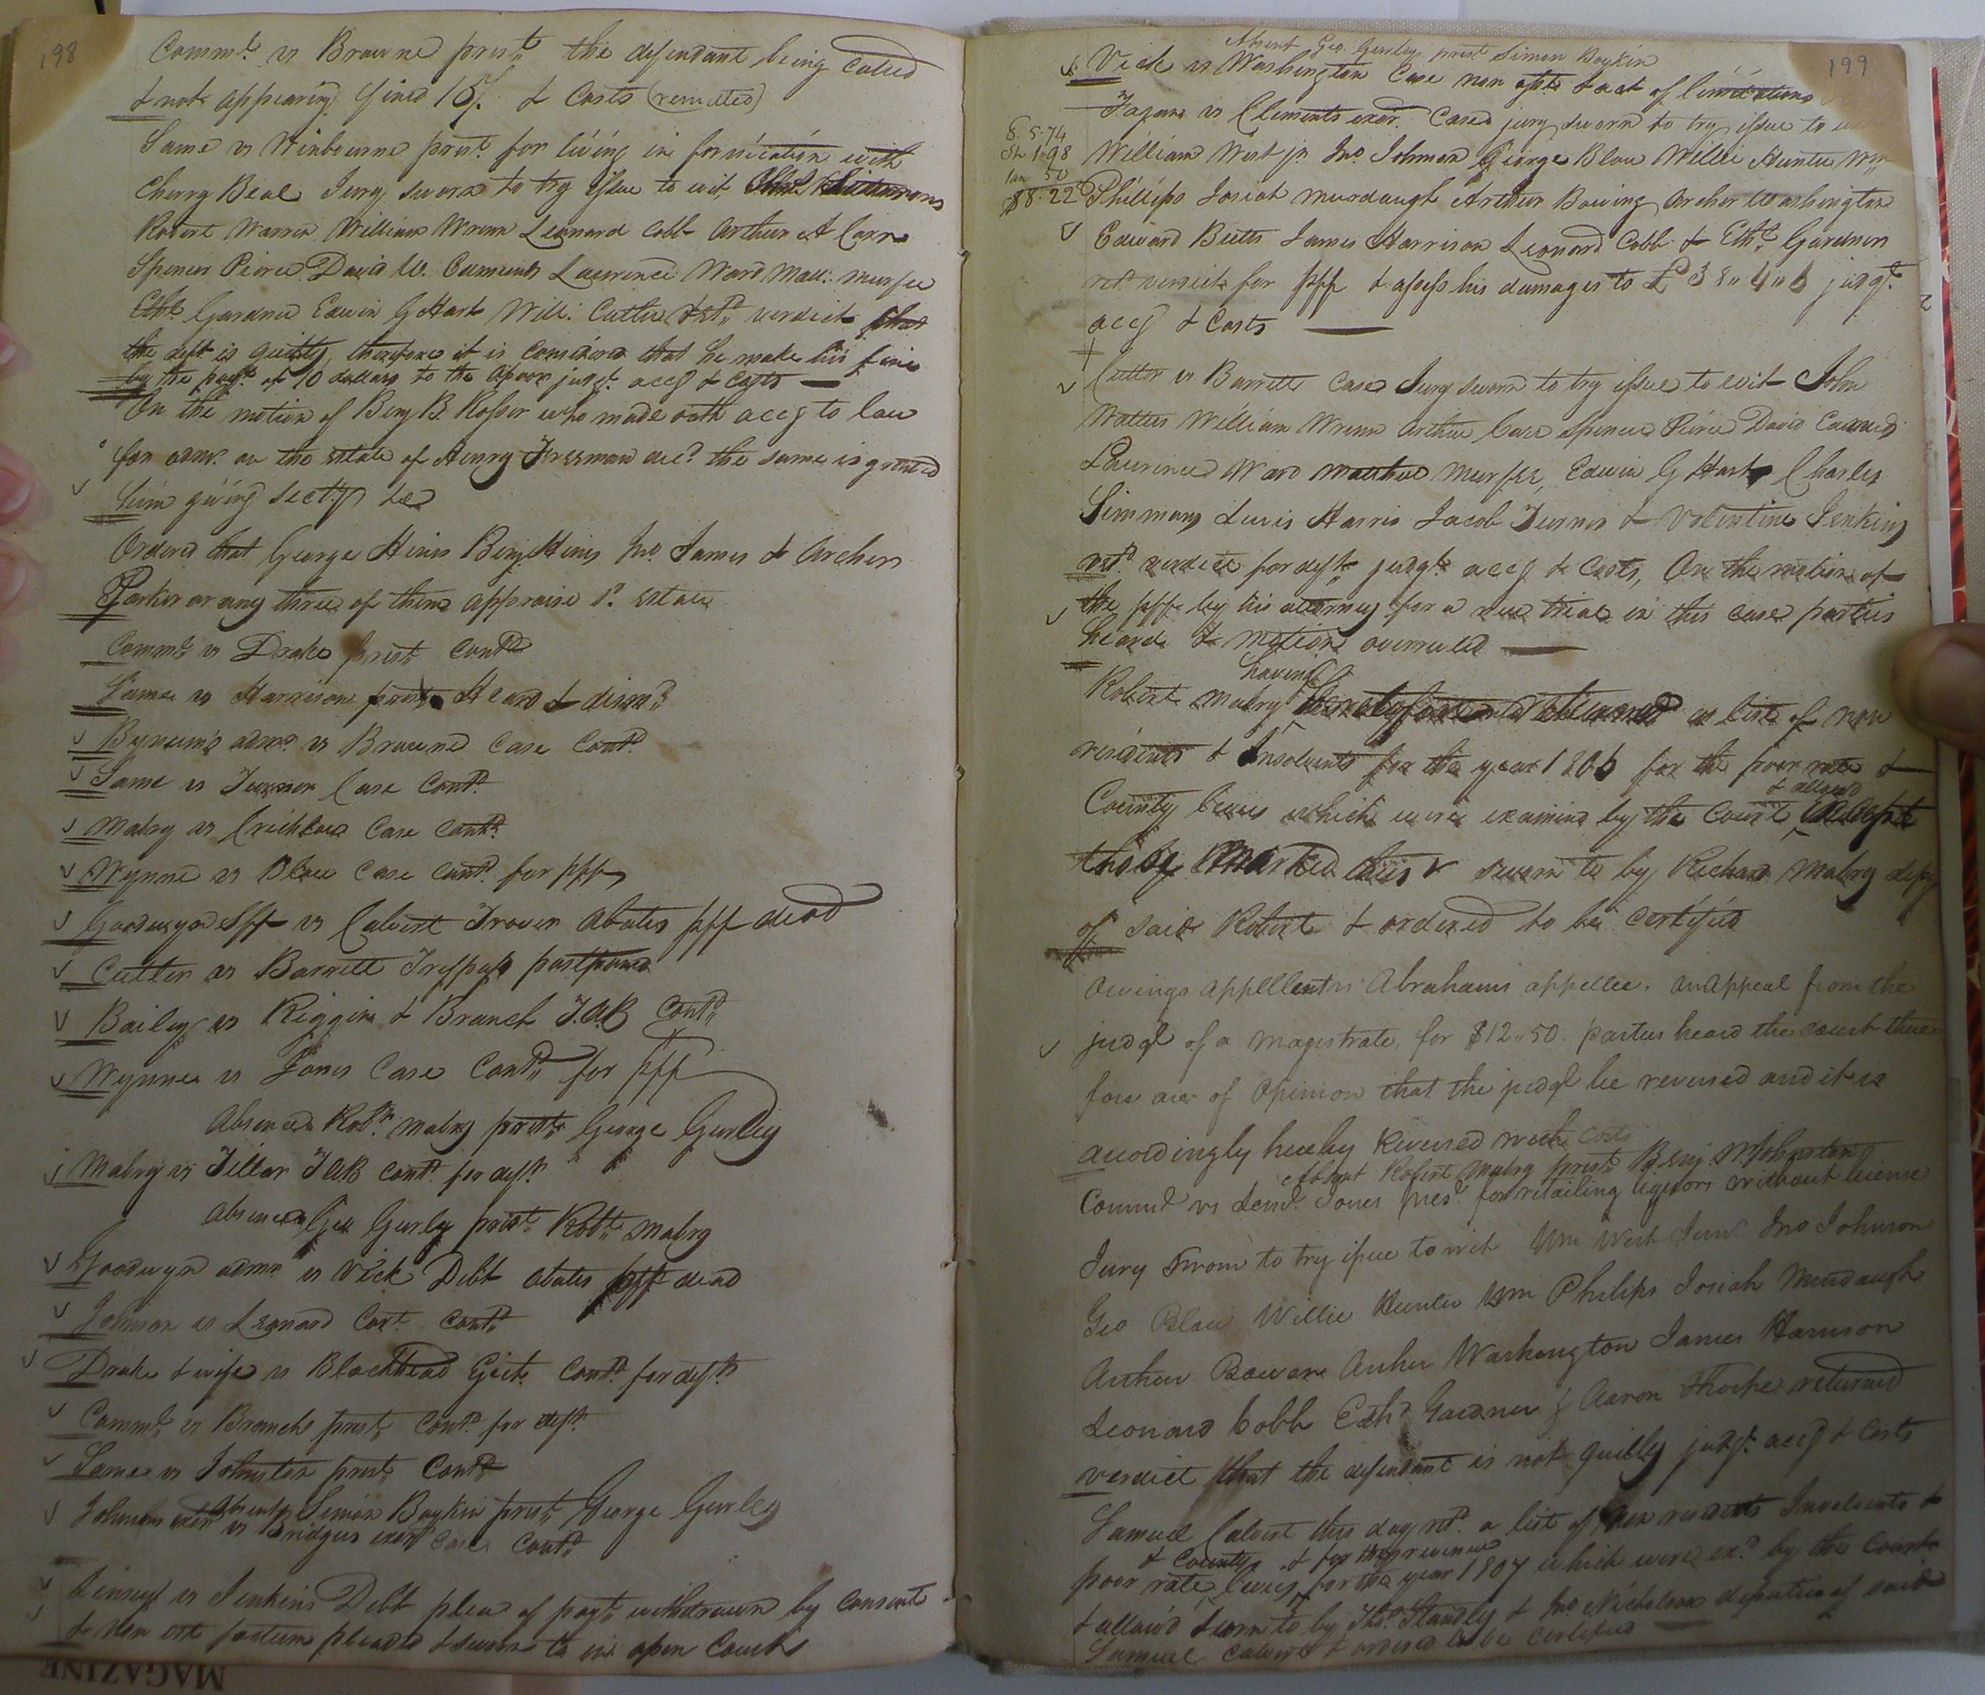 198
Commth vs Browne prest. the defendant being Called
& not appearing fined 18/. & Costs (remitted)
Same vs Winbourne prest. for living in fornication with
Cherry Beal Jury sworn to try issue to wit,
Robert Warren William Wrenn Leonard Cobb Arthur A Carr
Spencer Peirce David W. Laurence Ward Matt. Murfee
Ethd. Gardner Edwin G Hart Will. Cutler & retd. verdict that
the deft is guilty, therefore it is Considered that he make his fine
by the payt. of 10 dollars to the judgt. accg & Costs
On the motion of Benj B. Rosser who made oath accg to law
for admr. on the estate of Henry Freeman decd. the same is granted
him giving secty &c
Ordered that George Hines Benj Hines Jno James & Archer
Parker or any three of them appraise sd. estate
Commth vs Drake prest. Contd
Same vs Harrison prest. Heard & dismd.
Bynum's admr vs Browne Case Contd.
Same vs Turner Case Contd.
Mabry vs Crichlow Case Contd.
Wynne vs Blow Case Contd. for plff
Goodwyn plff vs Calvert Trover Abates plff dead
Cutler vs Barrett Trespass postponed
Bailey vs Riggin & Branch T.A.B Contd.
Wynne vs Jones Case Contd. for plff
Absence Robt. Mabry prest. George Gurley
Mabry vs Tillar TAB Contd. for deft.
Absence Geo Gurley prest. Robt. Mabry
Goodwyn admr vs Vick Debt abates plff dead
Johnson vs Leonard Cont.
Drake & wife vs Blackhead Eject. Contd. for deft.
Commth vs Branch prest. Contd. for deft.
Same vs Johnston prest. Contd
Absent Simon Boykin prest. George Gurley
Johnson exor vs Bridges exor Case Contd
vs Jenkins Debt plea of payt. withdrawn by Consent
& non est factum pleaded & sworn to in open Court
199
Absent Geo Gurley prest. Simon Boykin
Vick vs Washington Case non asst. & act of limitations
Fagan vs Clements exor. Case jury sworn to try issue to
8.5.74
Sh 1.98
50
$8.22
William West jr Jno Johnson George Blow Willie Hunter Wm
Phillips Josiah Murdaugh Arthur Bowing Archer Washington
Edward Butts James Harrison Leonard Cobb & Ethd. Gardner
retd. verdict for plff & assess his damages to judgt.
accg & Costs
Cutler vs Barrett Case Jury sworn to try issue to wit John
Watters William Wrenn Arthur Carr Spencer Peirce David
Laurence Ward Matthew Murfee, Edwin G Hart, Charles
Simmons Lewis Harris Jacob Turner & Valentine Jenkins
retd. verdict for deft. judgt. accg & Costs, On the motion of
the plff by his attorney for a new trial in this case parties
heard & motion overruled
having
Robert Mabry a list of non
residents & Insolvents for the year 1806 for the poor rate &
& allowd
County levies which were examined by the Court
those marked thus sworn to by Richard Mabry depy
of said Robert & ordered to be certified
Owings appellant vs Abrahams appellee. an Appeal from the
judgt of a Magistrate for $12.50. parties heard the court there
fore are of Opinion that the judgt be reversed and it is
accordingly hereby Reversed with costs
Absent Robert Mabry prest. Benj. W Johnston
Commth vs Jones pres. for retailing liquors without license
Jury Sworn to try issue to wit Wm West Junr. Jno Johnson
Geo Blow Willie Hunter Wm Philips Josiah Murdaugh
Arthur Bowen Archer Washington James Harrison
Leonard Cobb Ethd. Gardner & Aaron Thorpe returned
verdict that the defendant is not guilty judgt. accg & Costs
Samuel Calvert this day retd. a list of non residents Insolvents &
& County & for the revenue
poor rate levies for the year 1807 which were exd. by the Court
& allowed & sworn to by Thos. Standly & Jno Nicholson deputies of said
Samuel Calvert & ordered to be certified
MAGAZINE